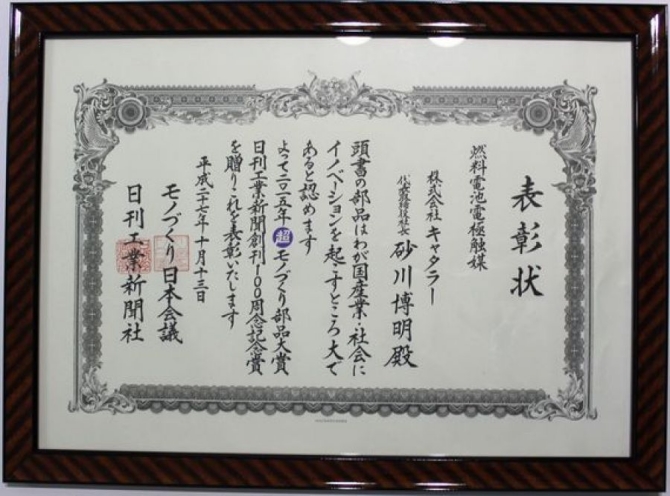 表彰状
燃料電池電極触媒
株式会社 キャタラー
代表取締役社長 砂川博明殿
頭書の部品はわが国産業・社会に
イノベーションを起こすところ大で
あると認めます
よって二〇一五年超モノづくり部品大賞
日刊工業新聞創刊100周年記念賞
を贈りこれを表彰いたします
平成二十七年十月十三日
モノづくり日本会議
日刊工業新聞社